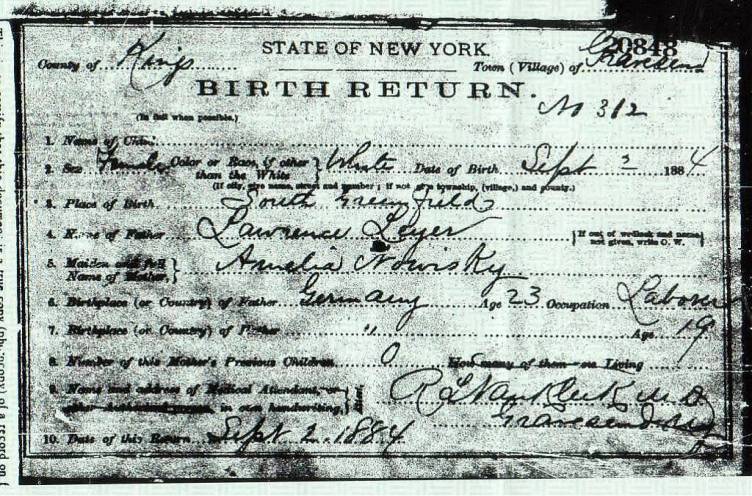 20848
STATE OF NEW YORK.
County of Kings Town (Village) of Gravesend
BIRTH RETURN.
No 312
(In full when possible.)
1. Name of Child
2. Sex Female Color or Race, if other than the White } White Date of Birth, Sept 2 1884
(If city, give name, street and number; if not give township, (village,) and county.)
3. Place of Birth South Greenfield
4. Name of Father Lawrence Leyer {If out of wedlock and name not given, write O. W.}
5. Maiden and full Name of Mother. } Amelia Nowisky
6. Birthplace (or Country) of Father Germany Age 23 Occupation Laborer
7. Birthplace (or Country) of Mother " Age 19
8. Number of this Mother's Previous Children 0 How many of them now Living
9. Name and address of Medical Attendant, or other in own handwriting, } R L Van Kleek M.D
Gravesend
10. Date of this Return Sept 2. 1884